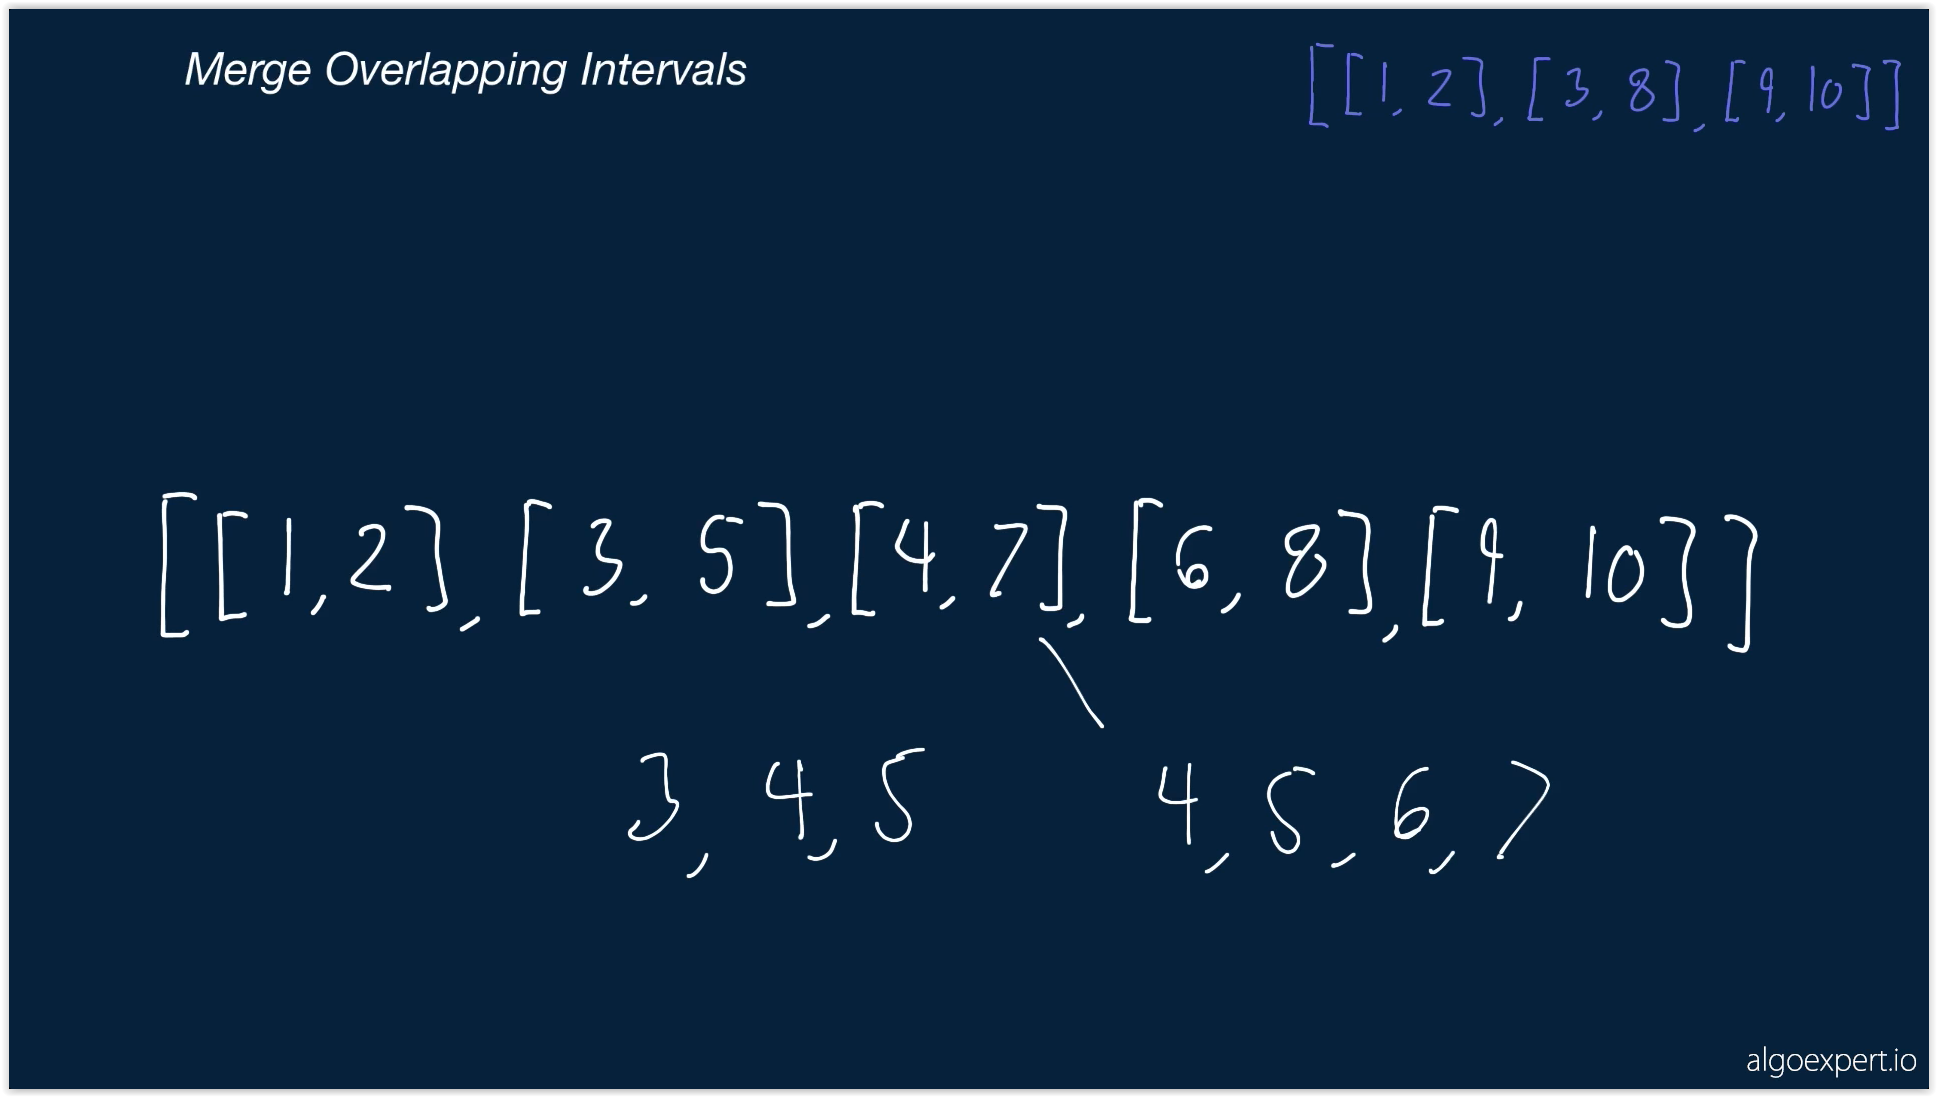 Merge Overlapping Intervals
[[1, 2], [3, 8], [9, 10]]
[[1,2], [3, 5], [4, 7], [6, 8], [9, 10]]
3, 4, 5 4, 5, 6, 7
algoexpert.io